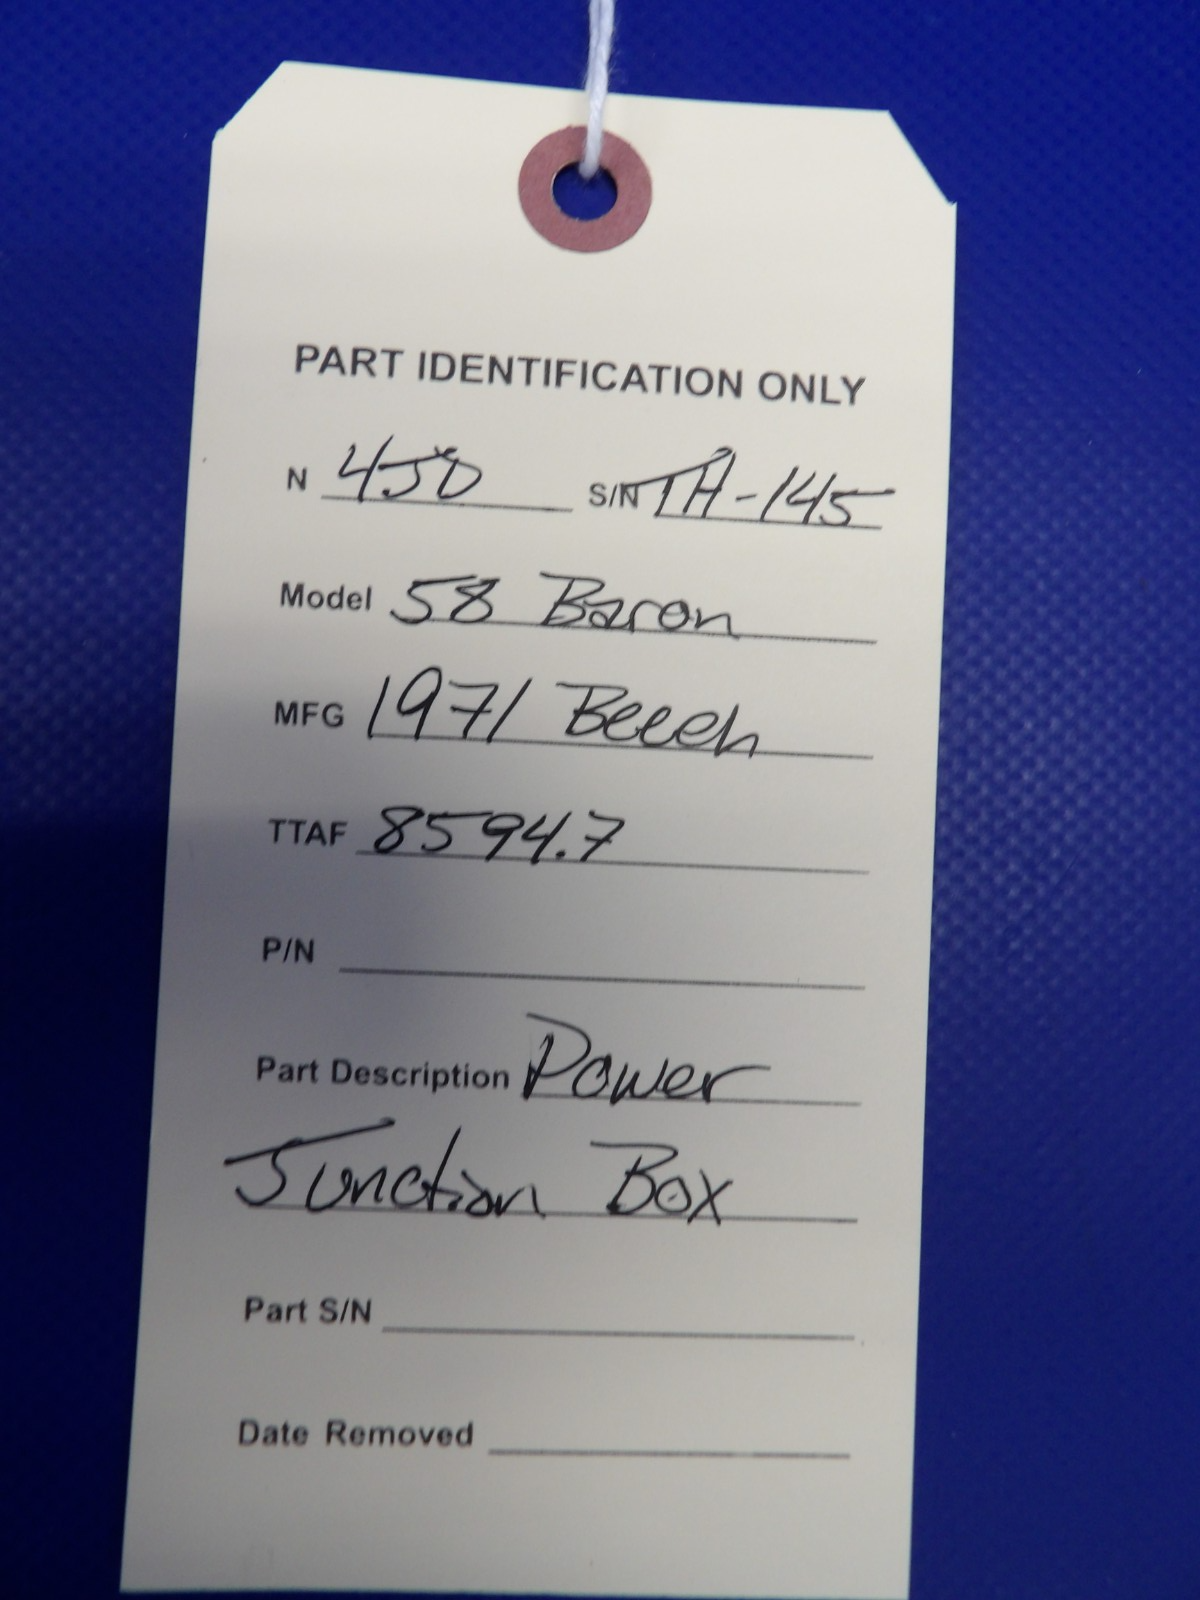 PART IDENTIFICATION ONLY
N 4JD S/N TH-145
Model 58 Baron
MFG 1971 Beech
TTAF 8594.7
P/N
Part Description Power
Junction Box
Part S/N
Date Removed